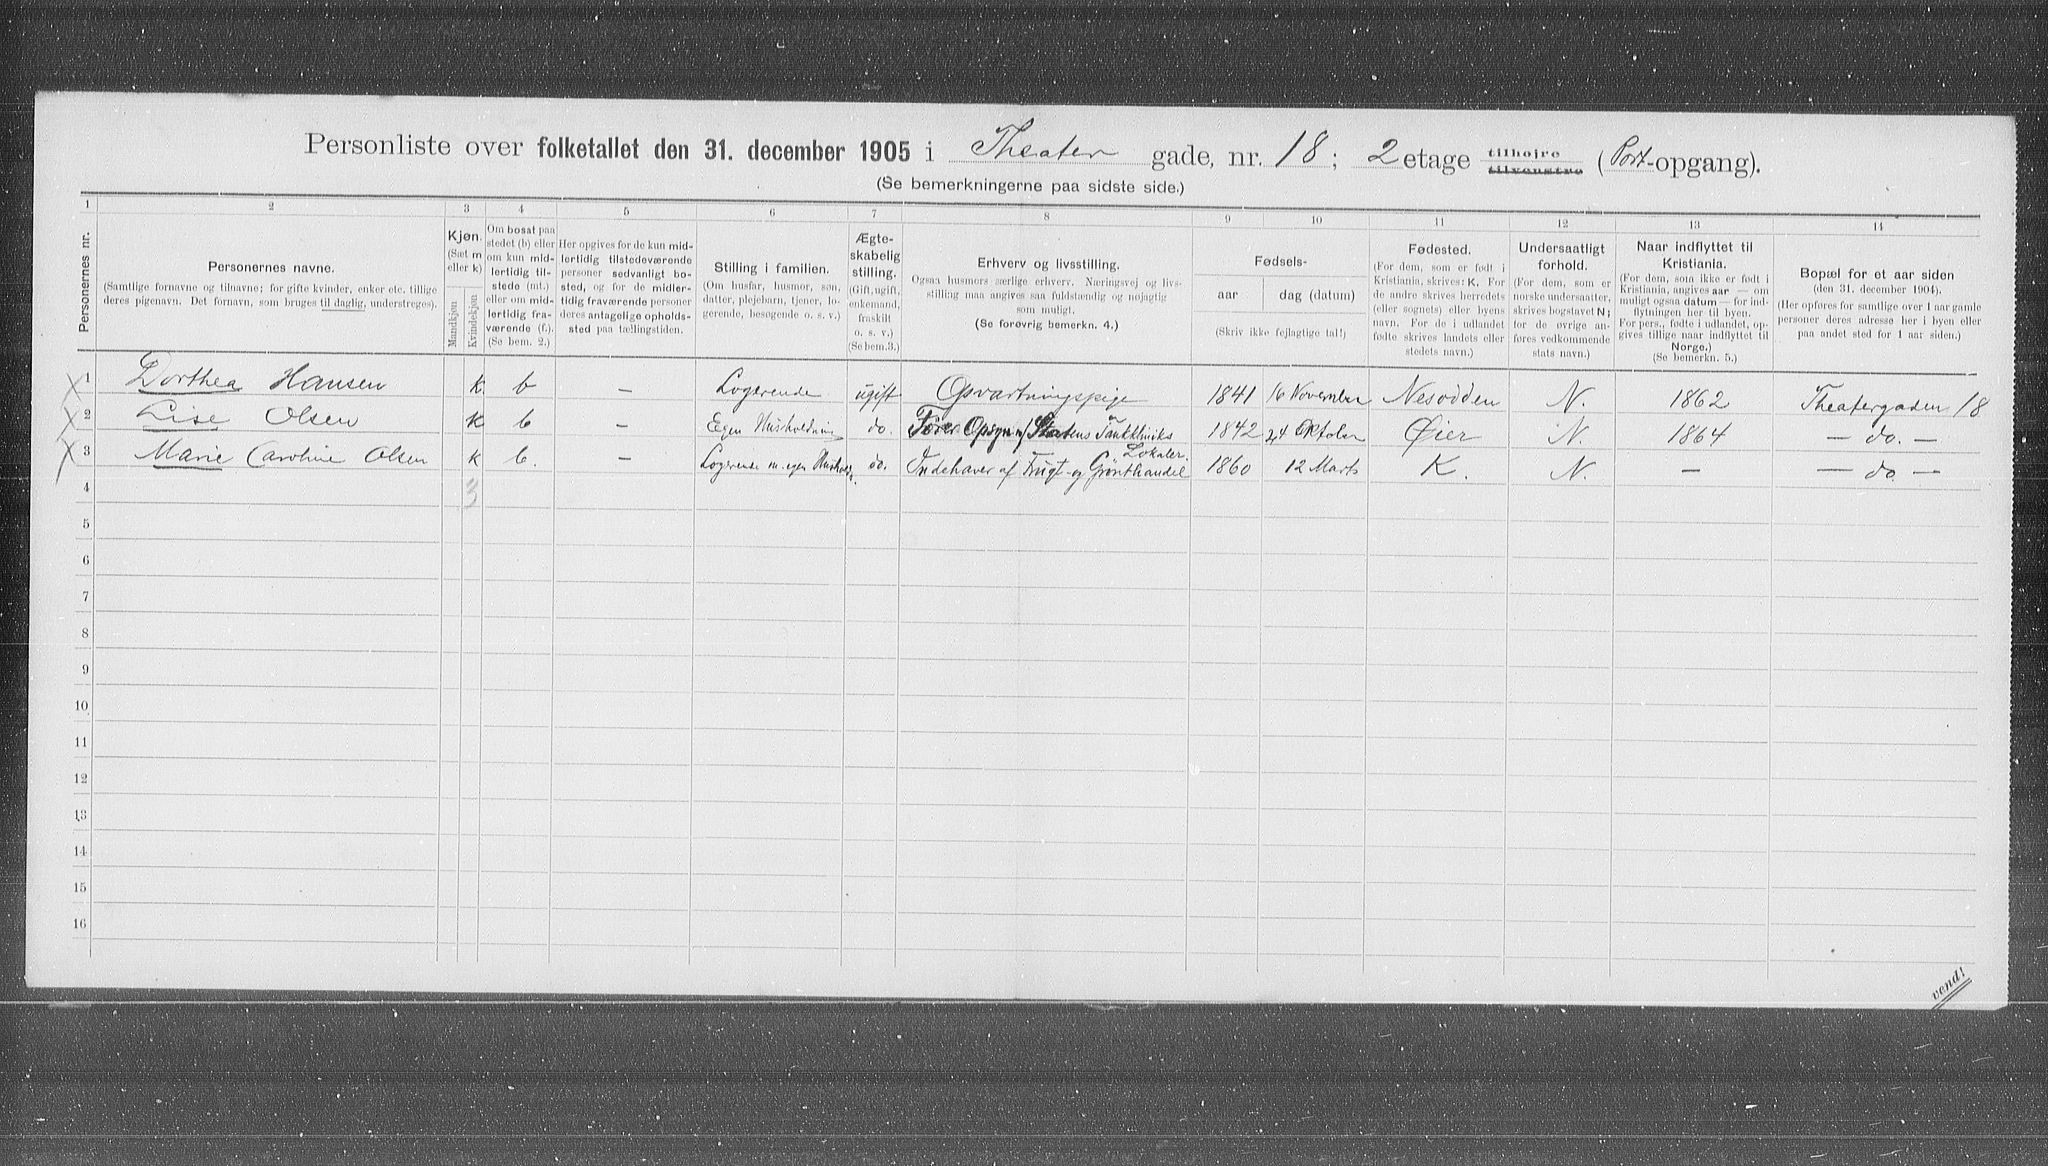 Personliste over folketallet den 31. december 1905 i Theater gade, nr. 18; 2 etage tilhøjre tilvenstre (Port-opgang).
(Se bemerkningerne paa sidste side.)
1 2 3 4 5 6 7 8 9 10 11 12 13 14
Personernes nr.
Personernes navne.
(Samtlige fornavne og tilnavne; for gifte kvinder, enker etc. tillige
deres pigenavn. Det fornavn, som bruges til daglig, understreges).
Kjøn.
(Sæt m
eller k)
Mandkjøn
Kvindekjøn
Om bosat paa
stedet (b) eller
om kun mid-
lertidig til-
stede (mt.)
eller om mid-
lertidig fra-
værende (f.).
(Se bem. 2.)
Her opgives for de kun mid-
lertidig tilstedeværende
personer sedvanligt bo-
sted, og for de midler-
tidig fraværende personer
deres antagelige opholds-
sted paa tællingstiden.
Stilling i familien.
(Om husfar, husmor, søn,
datter, plejebarn, tjener, lo-
gerende, besøgende o. s. v.)
Ægte-
skabelig
stilling.
(Gift, ugift,
enkemand,
fraskilt
o. s. v.)
(Se bem.3.)
Erhverv og livsstilling.
Ogsaa husmors særlige erhverv. Næringsvej og livs-
stilling maa angives saa fuldstændig og nøjagtig
som muligt.
(Se forøvrig bemerkn. 4.)
Fødsels-
aar
dag (datum)
(Skriv ikke fejlagtige tal!)
Fødested.
(For dem, som er født i
Kristiania, skrives: K. For
de andre skrives herredets
(eller sognets) eller byens
navn. For de i udlandet
fødte skrives landets eller
stedets navn.)
Undersaatligt
forhold.
(For dem, som er
norske undersaatter,
skrives bogstavet N;
for de øvrige an-
føres vedkommende
stats navn.)
Naar indflyttet til
Kristiania.
(For dem, som ikke er født i
Kristiania, angives aar — om
muligt ogsaa datum — for ind-
flytningen her til byen.
For pers., fødte i udlandet, op-
gives tillige naar indflyttet til
Norge.)
(Se bemerkn. 5.)
Bopæl for et aar siden
(den 31. december 1904).
(Her opføres for samtlige over 1 aar gamle
personer deres adresse her i byen eller
paa andet sted for 1 aar siden.)
1 Dorthea Hansen k b — Logerende ugift Opvartningspige 1841 16 November Nesodden N. 1862 Theatergaden 18
2 Lise Olsen k b — Egen Husholdning do. Opsyn m/ Statens Lokaler. 1842 24 Oktober Øier N. 1864 — do. —
3 Marie Caroline Olsen k b. — Logerende m. egen Hushold. do. Indehaver af Frugt- og Grønthandel 1860 12 Marts K. N. — — do —
4 3
5
6
7
8
9
10
11
12
13
14
15
16
vend!